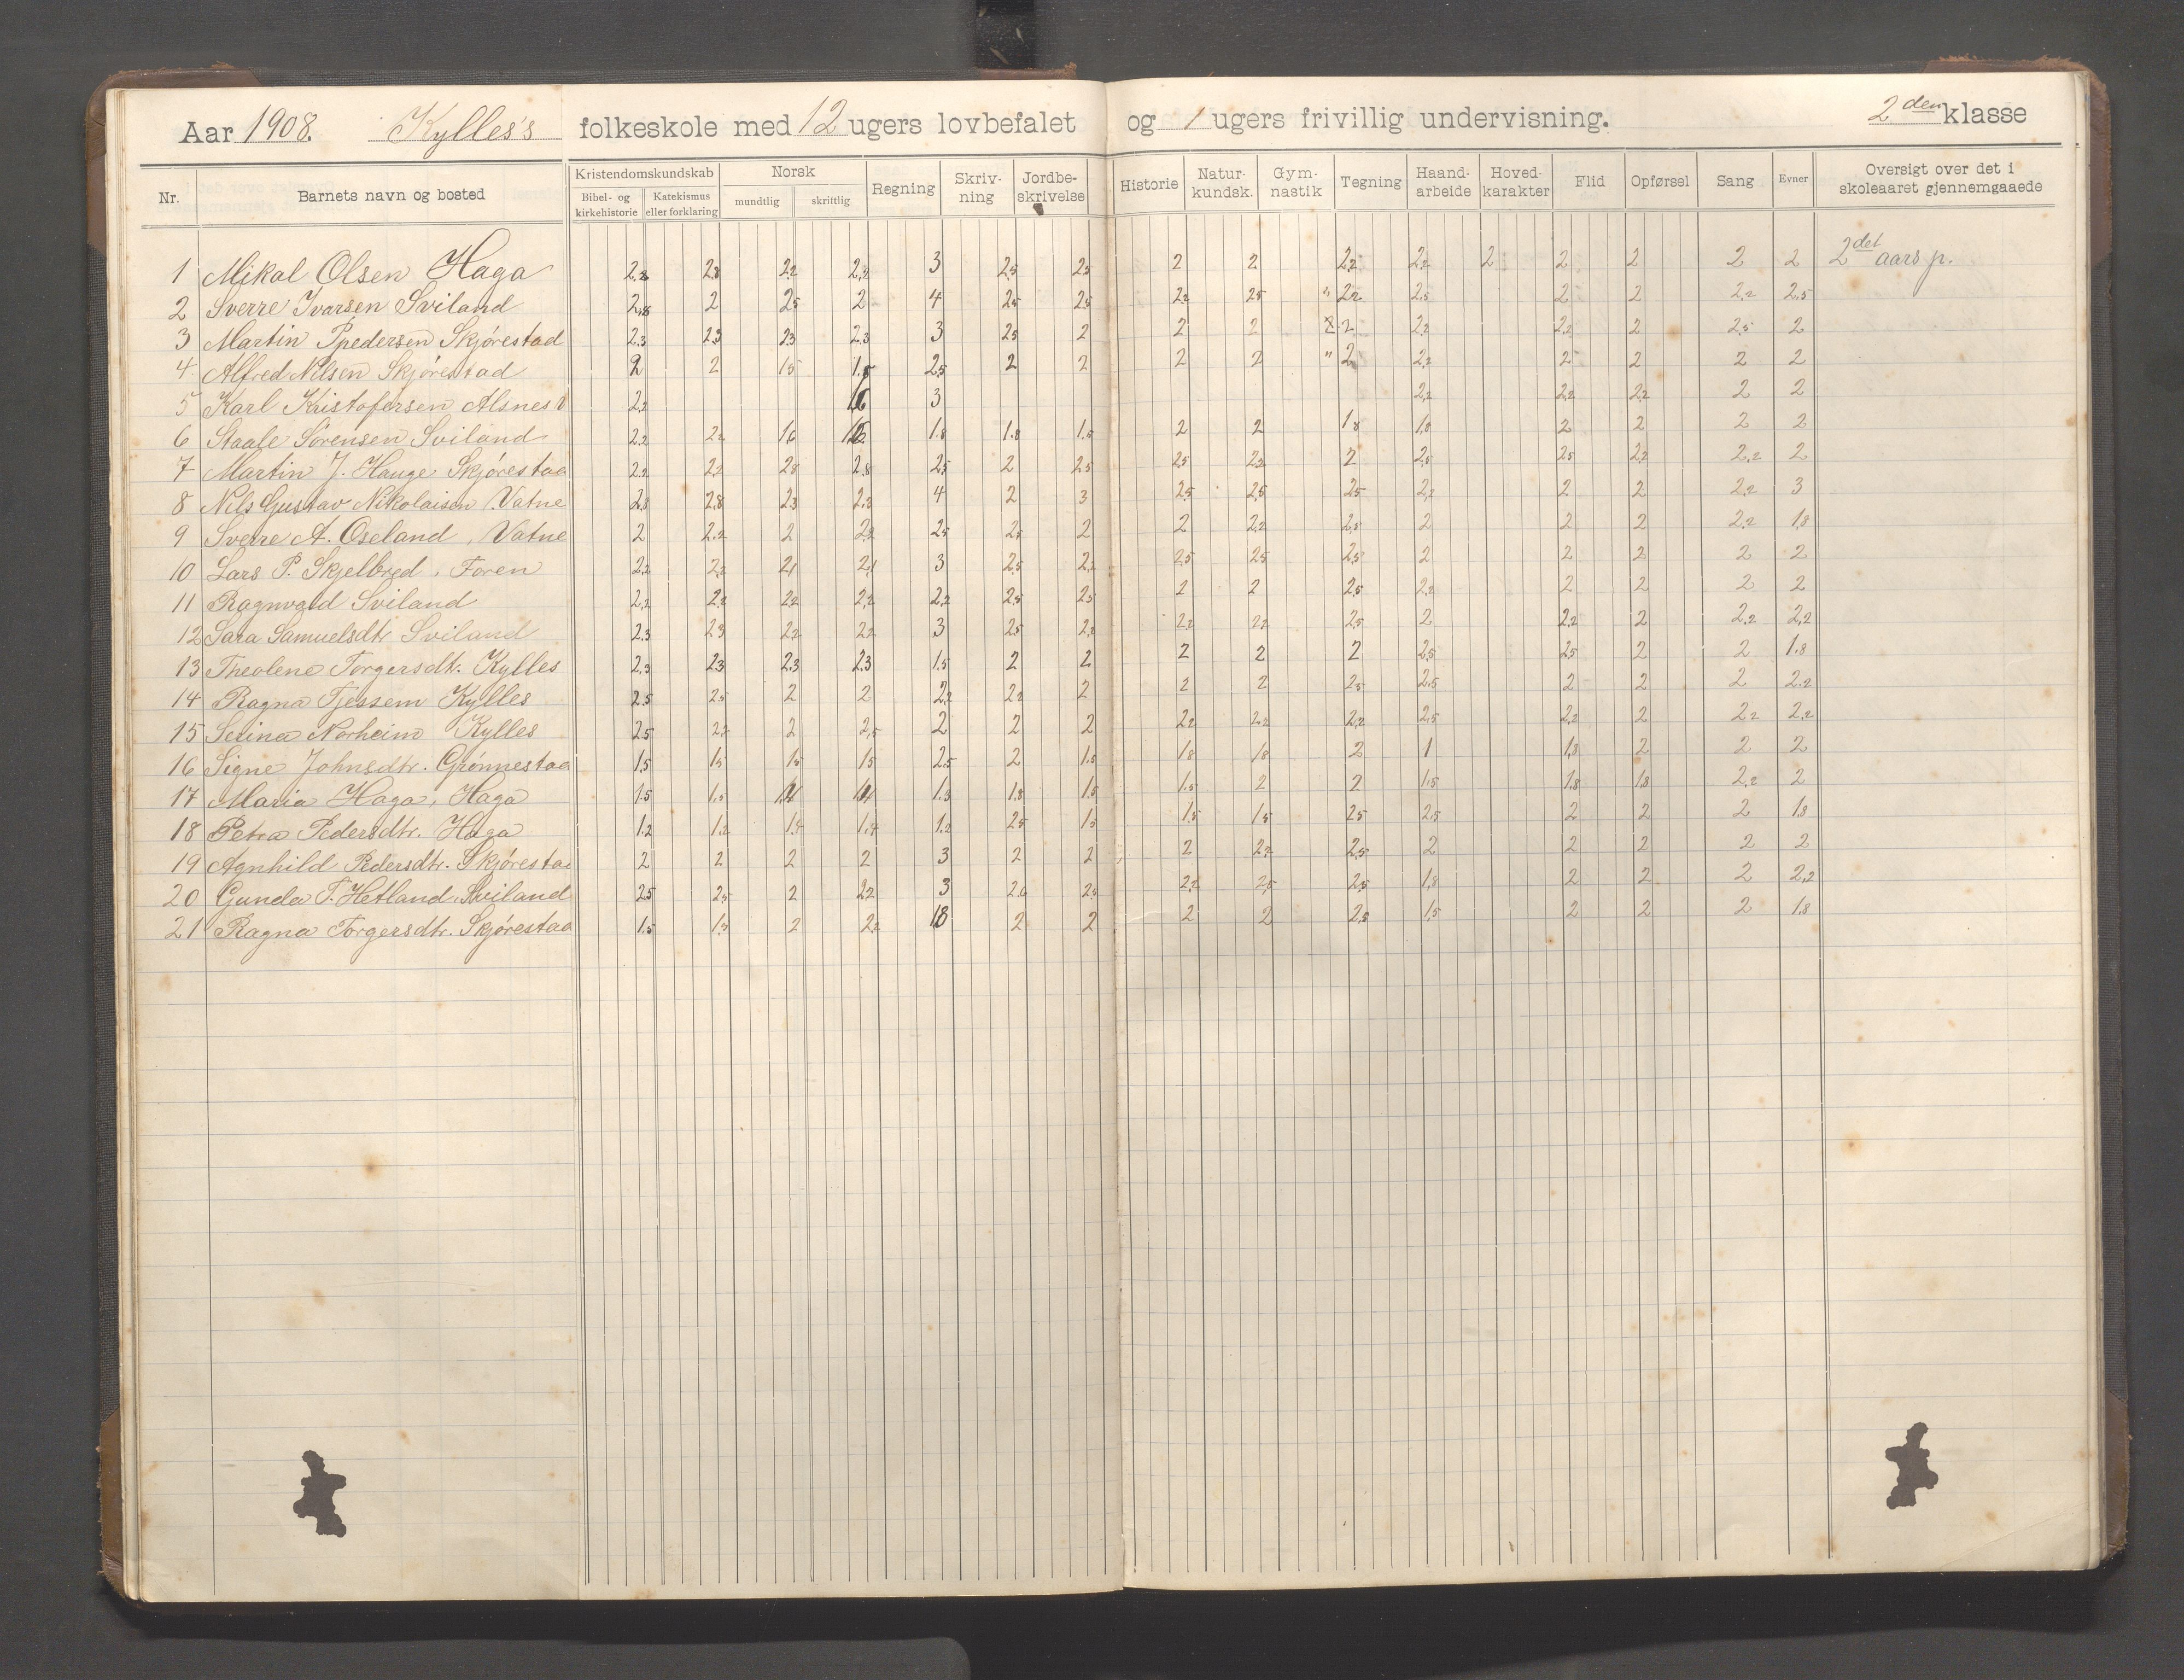 Aar 1908. Kylles's folkeskole med 12 ugers lovbefalet og 1 ugers frivillig undervisning. 2den klasse
Nr. Barnets navn og bosted Kristendomskundskab Bibel- og kirkehistorie Katekismus eller forklaring Norsk mundtlig skriftlig Regning Skriv-ning Jordbe-skrivelse Historie Natur-kundsk. Gym-nastik Tegning Haand-arbeide Hoved-karakter Flid Opførsel Sang Evner Oversigt over det i skoleaaret gjennemgaaede
1 Mikal Olsen Haga 2,2 2,8 2,2 2,2 3 2,5 2,5 2 2 2,2 2,2 2 2 2 2 2 2det aars p.
2 Sverre Ivarsen Sviland 2,8 2 2,5 2 4 2,5 2,5 2,2 2,5 " 2,2 2,5 2 2 2,2 2,5
3 Martin Ppedersen Skjørestad 2,3 2,3 2,3 2,3 3 2,5 2 2 2 2 2,2 2,2 2 2,5 2
4 Alfred Nilsen Skjørestad 2 2 1,5 1,5 2,5 2 2 2 2 " 2 2,2 2 2 2 2
5 Karl Kristofersen Alsnes 2,2 3 2,2 2,2 2,2 2 2
6 Staale Sørensen Sviland 2,2 2,2 1,6 1,8 1,8 1,5 2 2 1,8 1,8 2 2 2 2
7 Martin J. Hauge Skjørestad 2,2 2,2 2,8 2,8 2,5 2 2,5 2,5 2,2 2 2,5 2,5 2,2 2,2 2
8 Nils Gustav Nikolaisen Vatne 2,8 2,8 2,3 2,3 4 2 3 2,5 2,5 2,5 2,2 2 2 2,2 3
9 Sverre A. Oseland, Vatne 2 2,2 2 2,2 2,5 2,5 2 2 2,2 2,5 2 2 2 2,2 1,8
10 Lars P. Skjelbred, Foren 2,2 2,2 2,1 2,1 3 2,5 2,2 2,5 2,5 2,5 2 2 2 2 2
11 Ragnvald Sviland 2,2 2,2 2,2 2,2 2,2 2,5 2,5 2 2 2,5 2,2 2 2 2 2
12 Sara Samuelsdtr Sviland 2,3 2,3 2,2 2,2 3 2,5 2,2 2,2 2,2 2,5 2 2,2 2 2,2 2,2
13 Theolene Torgersdt. Kylles 2,3 2,3 2,3 2,3 1,5 2 2 2 2 2 2,5 2,5 2 2 1,8
14 Ragna Tjessem Kylles 2,5 2,5 2 2 2,2 2,2 2 2 2 2,5 2,5 2 2 2 2,2
15 Serina Norheim Kylles 2,5 2,2 2 2,5 2 2 2 2,2 2,2 2,2 2,5 2,2 2 2,2 2,2
16 Signe Johnsdtr. Grønnestad 1,5 1,5 1,5 1,5 2,5 2 1,5 1,8 1,8 2 1 1,8 2 2 2
17 Maria Haga, Haga 1,5 1,5 1,4 1,4 1,3 1,8 1,5 1,5 2 2 1,5 1,8 1,8 2,2 2
18 Petra Pedersdtr. Haga 1,2 1,2 1,4 1,4 1,2 2,5 1,5 1,5 1,5 2,5 2,5 2 2 2 1,8
19 Agnhild Pedersdtr. Skjørestad 2 2 2 2 3 2 2 2 2,2 2,5 2 2 2 2 2
20 Gunda T. Hetland, Sviland 2,5 2,5 2 2,2 3 2,0 2,5 2,2 2,5 2,5 1,8 2 2 2 2,2
21 Ragna Torgersdtr. Skjørestad 1,5 1,5 2 2,2 1,8 2 2 2 2 2,5 1,5 2 2 2 1,8